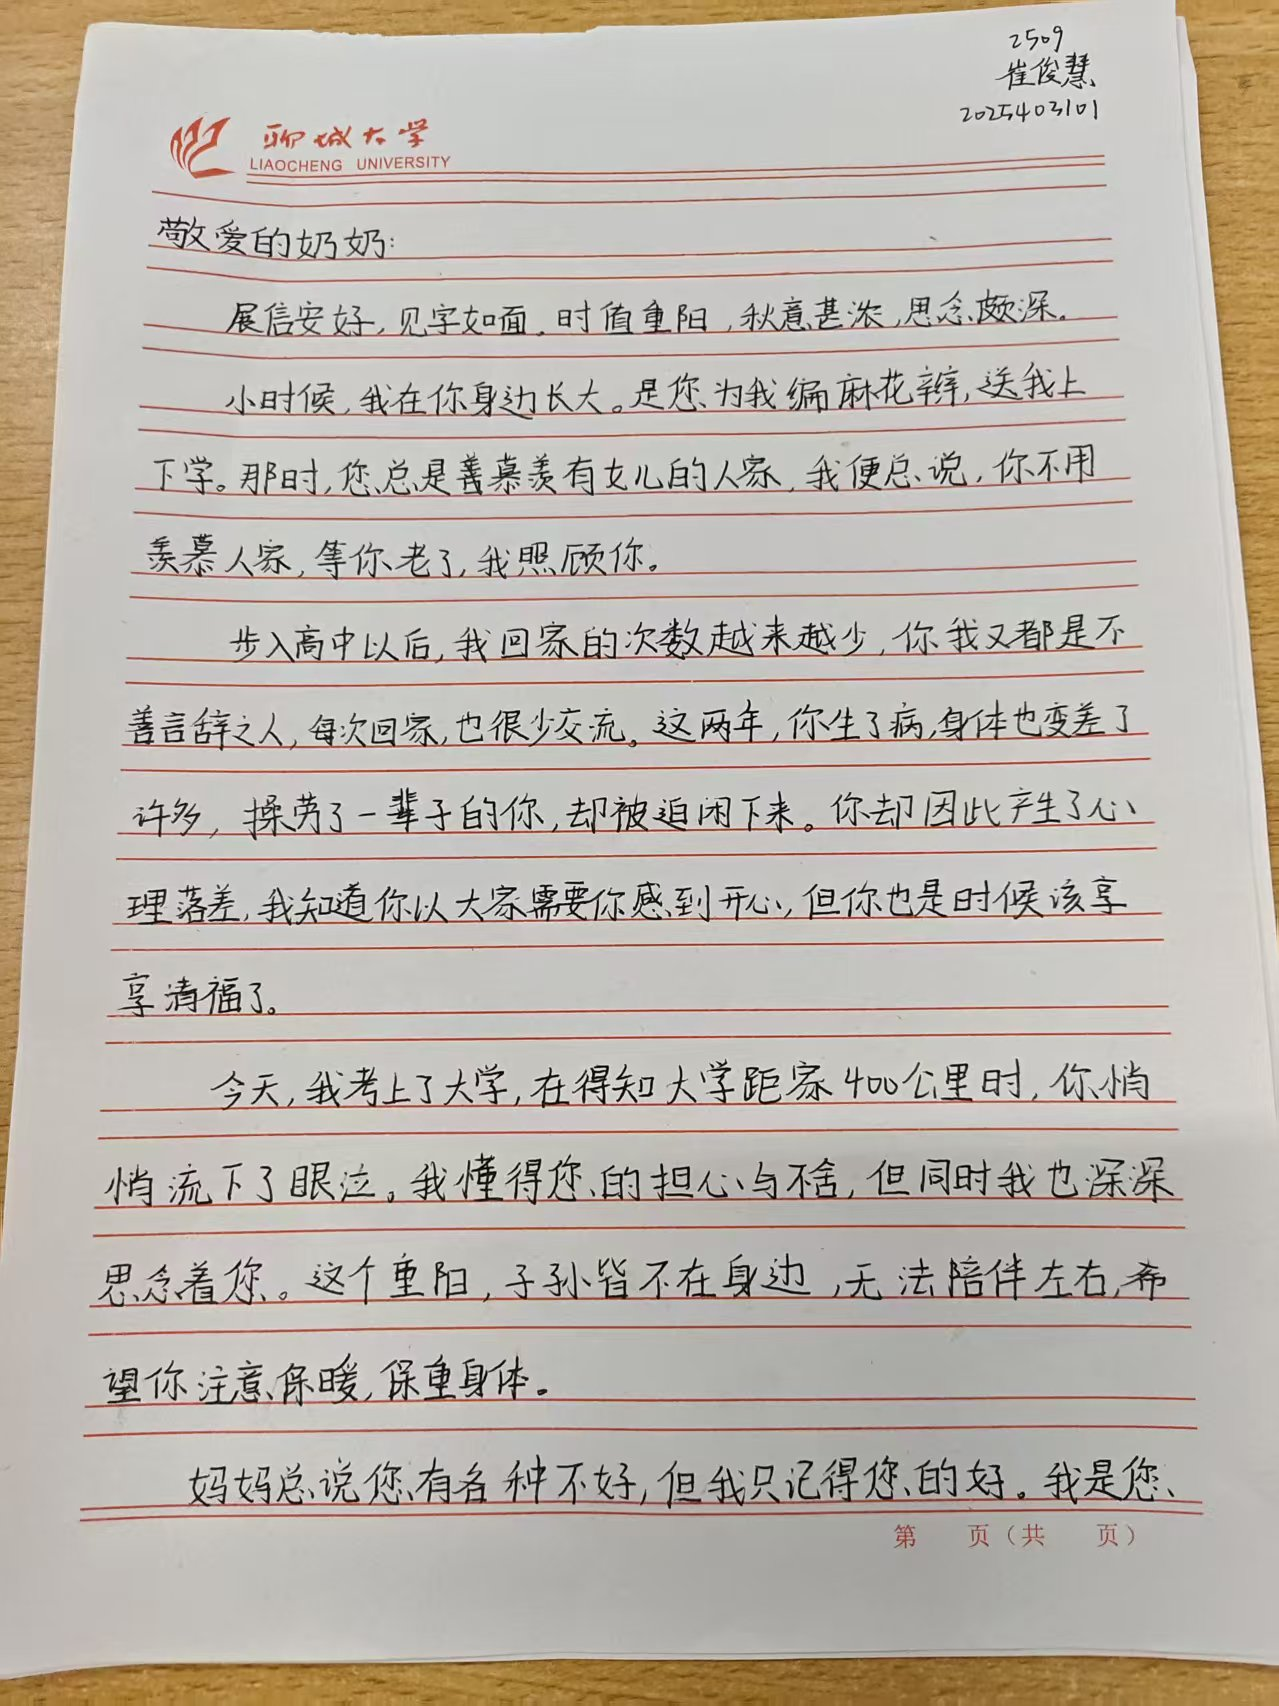 2509
崔俊慧
2025403101
聊城大学
LIAOCHENG UNIVERSITY
敬爱的奶奶:
展信安好,见字如面,时值重阳,秋意甚浓,思念颇深。
小时候,我在你身边长大。是您为我编麻花辫,送我上
下学。那时,您总是善慕羡有女儿的人家,我便总说,你不用
羡慕人家,等你老了,我照顾你。
步入高中以后,我回家的次数越来越少,你我又都是不
善言辞之人,每次回家,也很少交流。这两年,你生了病,身体也变差了
许多,操劳了一辈子的你,却被迫闲下来。你却因此产生了心
理落差,我知道你以大家需要你感到开心,但你也是时候该享
享清福了。
今天,我考上了大学,在得知大学距家400公里时,你悄
悄流下了眼泣。我懂得您的担心与不舍,但同时我也深深
思念着您。这个重阳,子孙皆不在身边,无法陪伴左右,希
望你注意保暖,保重身体。
妈妈总说您有各种不好,但我只记得您的好。我是您
第 页(共 页)